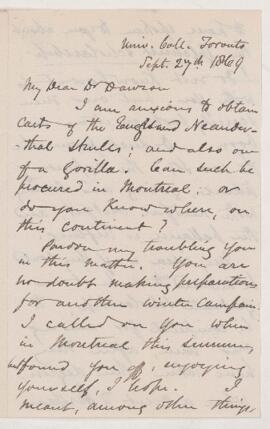 Univ. Coll. Toronto
Sept. 27th 1869
My Dear Dr Dawson
I am anxious to obtain
casts of the Engis and Neander-
thal skulls; and also one
of a Gorilla. Can such be
procured in Montreal. or
do you know where, on
this continent?
Pardon my troubling you
in this matter. You are
no doubt making preparations
for another winter campaign.
I called on you when
in Montreal this summer
and found you off, enjoying
yourself, I hope. I
meant, among other things